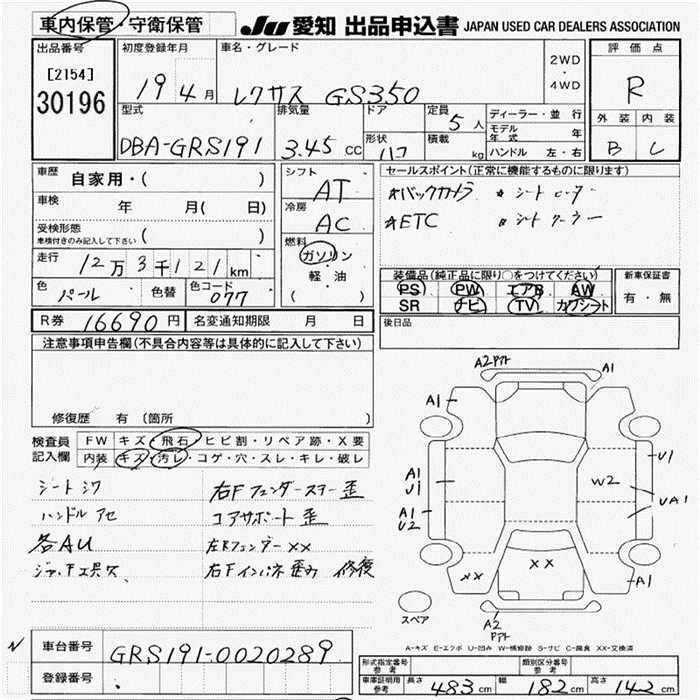 車内保管・守衛保管 JU 愛知 出品申込書 JAPAN USED CAR DEALERS ASSOCIATION
出品番号 初度登録年月 車名・グレード 2WD・4WD 評価点
[2154]
30196 19 4月 レクサス GS350 R
型式 排気量 ドア 定員 5人 ディーラー・並行 外装 内装
モデル年式 年
DBA-GRS191 3.45cc 形状 積載 kg ハンドル 左・右 B C
車歴 自家用・( ) シフト AT セールスポイント(正常に機能するものに限ります)
車検 年 月( 日) 冷房 AC *バックカメラ *シートヒーター
受検形態 ( ) *ETC *シートクーラー
車検付きのみ記入して下さい
燃料 ガソリン・軽油 ( )
走行 12万3千121km 装備品(純正品に限り○をつけてください) 新車保証書
PS PW エアB AW 有・無
色 パール 色替 色コード 077 SR ナビ TV カワシート
R券 16690円 名変通知期限 月 日 後日品
注意事項申告欄(不具合内容等は具体的に記入して下さい)
修復歴 有(箇所
検査員記入欄 FW キズ・飛石・ヒビ割・リペア跡・X要
内装 キズ・汚レ・コゲ・穴・スレ・キレ・破レ
シートシワ 右Fフェンダーステー歪
ハンドル アセ コアサポート歪
各AU 左Rフェンダー××
ジャッキ工具欠 右Fインパネ歪み 修復
A2 P介ト A1
A1
U1
A1
U1
W2
UA1
A1
U2
××
××
A1
スペア
A2
P介ト
A-キズ E-エクボ U-凹み W-補修跡 S-サビ C-腐食 XX-交換済
車台番号 GRS191-0020289
登録番号
形式指定番号 参考 類別区分番号 参考
車庫証明用 参考 長さ 483cm 幅 182cm 高さ 142cm